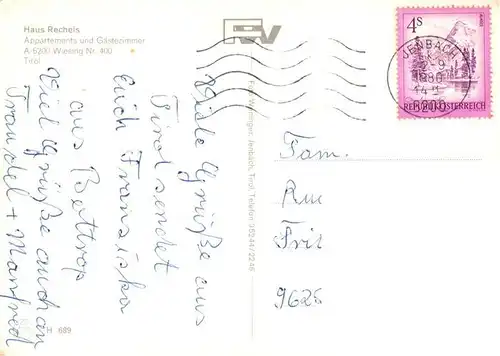 Haus Rechels
Appartements und Gästezimmer
A-6200 Wiesing Nr. 400
Tirol
Viele Grüße aus
Tirol sendet
Euch Franziska
aus Bottrop
Viel Grüße auch an
Traudel + Manfred
H 689
Jenbach, Tirol, Telefon 05244/2246
RV
4S
REPUBLIK ÖSTERREICH
JENBACH
6200
Fam.
9625